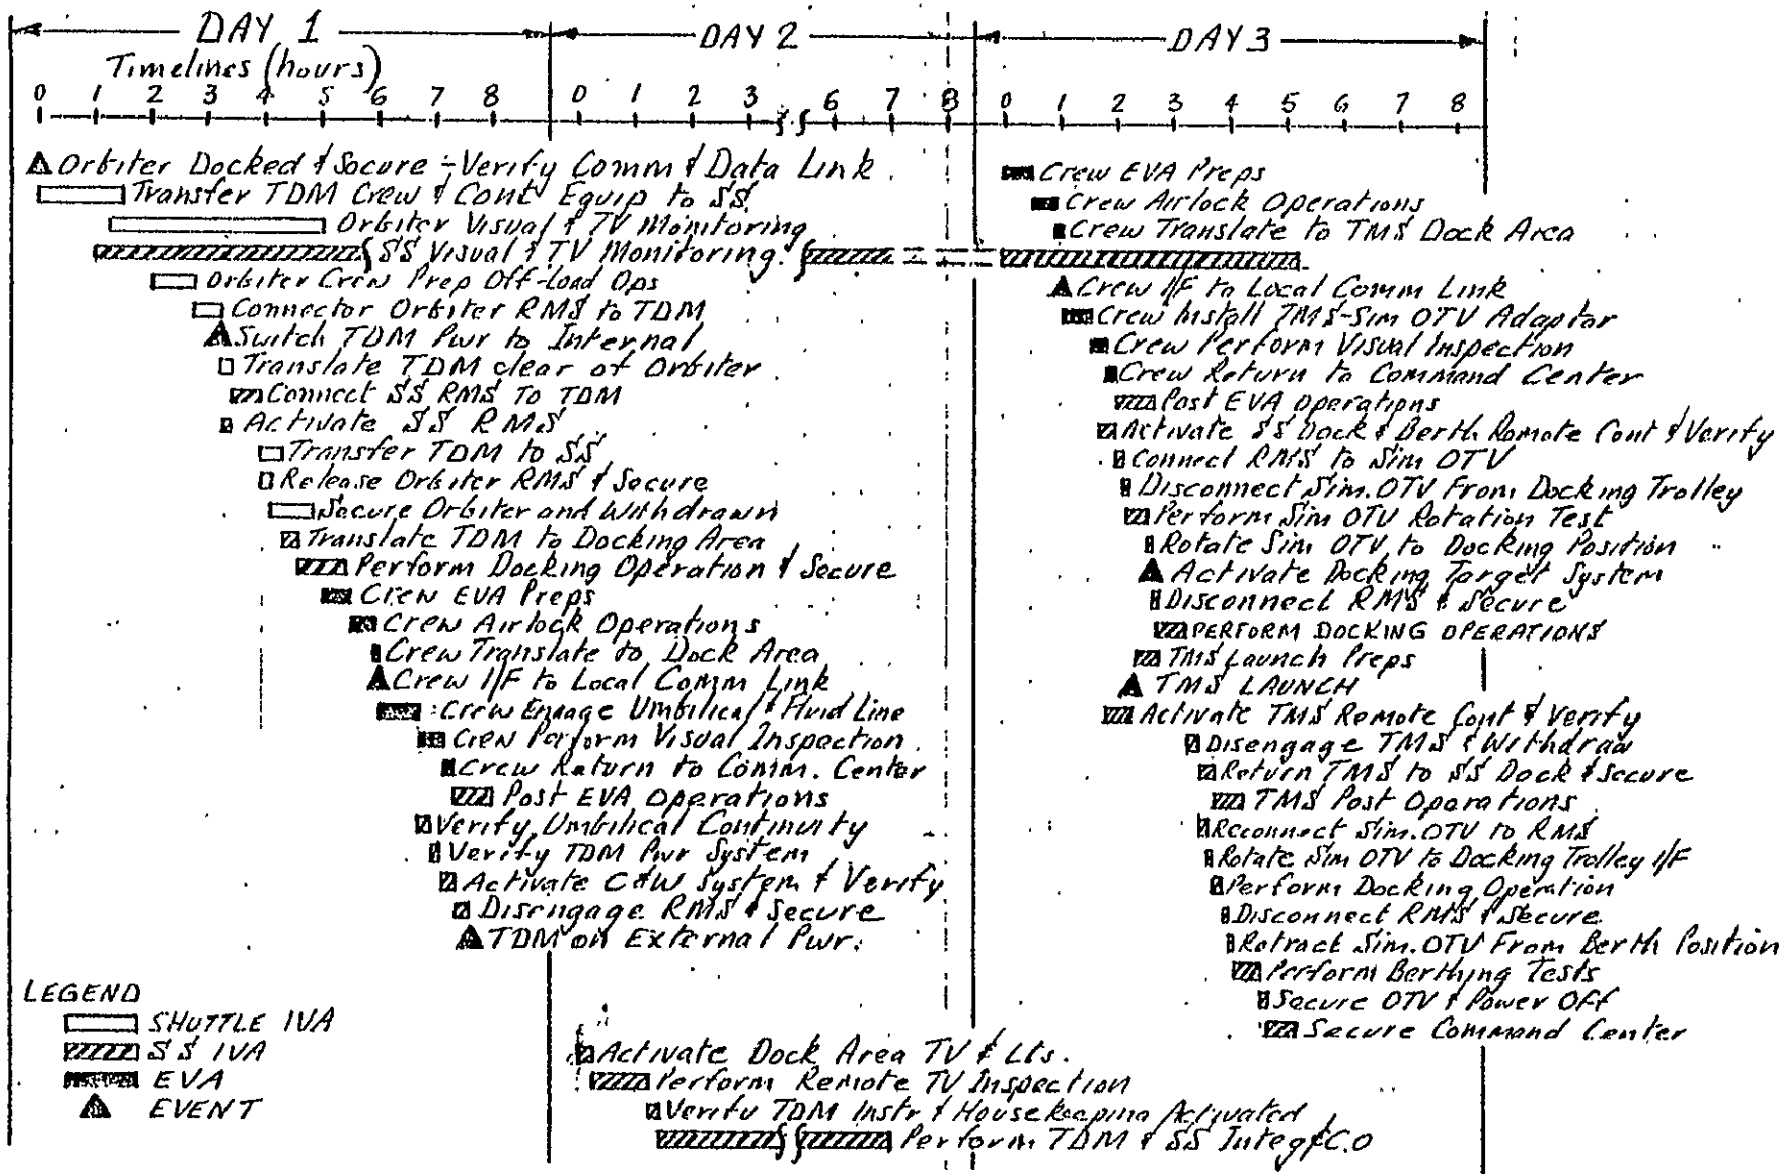 DAY 1 DAY 2 DAY 3
Timelines (hours)
0 1 2 3 4 5 6 7 8 0 1 2 3 6 7 8 0 1 2 3 4 5 6 7 8
Orbiter Docked & Secure - Verify Comm & Data Link.
Transfer TDM Crew & Cont Equip to SS
Orbiter Visual & TV Monitoring
SS Visual & TV Monitoring.
Orbiter Crew Prep Off-Load Ops
Connector Orbiter RMS to TDM
Switch TDM Pwr to Internal
Translate TDM clear of Orbiter
Connect SS RMS To TDM
Activate SS RMS
Transfer TDM to SS
Release Orbiter RMS & Secure
Secure Orbiter and Withdrawn
Translate TDM to Docking Area
Perform Docking Operation & Secure
Crew EVA Preps
Crew Airlock Operations
Crew Translate to Dock Area
Crew I/F to Local Comm Link
Crew Engage Umbilical & Fluid Line
Crew Perform Visual Inspection
Crew Return to Comm. Center
Post EVA Operations
Verify Umbilical Continuity
Verify TDM Pwr System
Activate C&W System & Verify
Disengage RMS & Secure
TDM on External Pwr.
LEGEND
SHUTTLE IVA
SS IVA
EVA
EVENT
Activate Dock Area TV & Lts.
Perform Remote TV Inspection
Verify TDM Instr & Housekeeping Activated
Perform TDM & SS Integ & C.O
Crew EVA Preps
Crew Airlock Operations
Crew Translate to TMS Dock Area
Crew I/F to Local Comm Link
Crew Install TMS-Sim OTV Adaptor
Crew Perform Visual Inspection
Crew Return to Command Center
Post EVA Operations
Activate SS Dock & Berth Remote Cont & Verify
Connect RMS to Sim OTV
Disconnect Sim. OTV From Docking Trolley
Perform Sim OTV Rotation Test
Rotate Sim OTV to Docking Position
Activate Docking Target System
Disconnect RMS & Secure
PERFORM DOCKING OPERATIONS
TMS Launch Preps
TMS LAUNCH
Activate TMS Remote Cont & Verify
Disengage TMS & Withdraw
Return TMS to SS Dock & Secure
TMS Post Operations
Reconnect Sim. OTV to RMS
Rotate Sim OTV to Docking Trolley I/F
Perform Docking Operation
Disconnect RMS & Secure
Retract Sim. OTV From Berth Position
Perform Berthing Tests
Secure OTV & Power Off
Secure Command Center